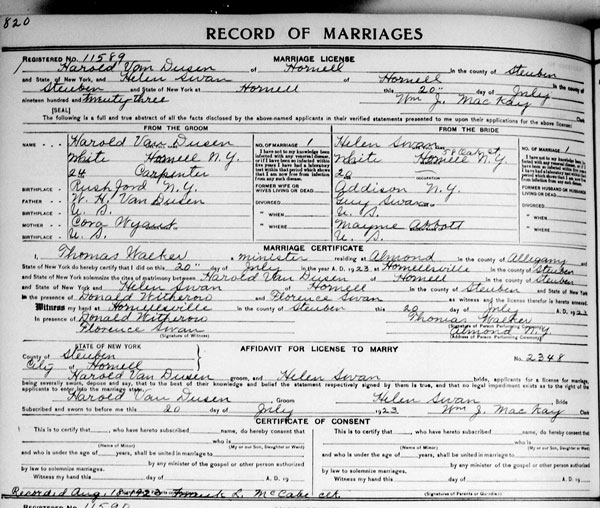 820
RECORD OF MARRIAGES
REGISTERED No. 11589 MARRIAGE LICENSE
Harold Van Dusen of Hornell in the county of Steuben
and State of New York, and Helen Swan of Hornell in the county of
Steuben and State of New York at Hornell this 20" day of July
nineteen hundred and twenty three Wm J. MacKay Clerk
[SEAL]
The following is a full and true abstract of all the facts disclosed by the above-named applicants in their verified statements presented to me upon their applications for the above license:
FROM THE GROOM FROM THE BRIDE
NAME Harold Van Dusen NO. OF MARRIAGE 1 Helen Swan NO. OF MARRIAGE 1
White Hornell N.Y. White Hornell N.Y.
24 Carpenter 20
BIRTHPLACE Rushford N.Y. FORMER WIFE OR WIVES LIVING OR DEAD Addison N.Y. FORMER HUSBAND OR HUSBANDS LIVING OR DEAD
FATHER W. H. Van Dusen DIVORCED Guy Swan DIVORCED
BIRTHPLACE U. S. " WHEN U. S. " WHEN
MOTHER Cora Wyant " WHERE Mayme Abbott " WHERE
BIRTHPLACE U. S. U. S.
MARRIAGE CERTIFICATE
I, Thomas Walker, a minister residing at Almond in the county of Allegany and
State of New York do hereby certify that I did on this 20" day of July in the year A. D. 1923 at Hornellsville in the county of Steuben
and State of New York solemnize the rites of matrimony between Harold Van Dusen of Hornell in the county of Steuben
and State of New York and Helen Swan of Hornell in the county of Steuben and State of New York
in the presence of Donald Witherow and Florence Swan as witness and the license therefor is hereto annexed.
Witness my hand at Hornellsville in the county of Steuben this 20 day of July A. D. 1923
In presence of Donald Witherow Thomas Walker
(Signature of Person Performing Ceremony)
Florence Swan Almond N.Y.
(Signature of Witness) (Address of Person Performing Ceremony)
STATE OF NEW YORK
County of Steuben AFFIDAVIT FOR LICENSE TO MARRY No. 2348
City of Hornell
Harold Van Dusen groom, and Helen Swan bride, applicants for a license for marriage,
being severally sworn, depose and say, that to the best of their knowledge and belief the statement respectively signed by them is true, and that no legal impediment exists as to the right of the
applicants to enter into the marriage state.
Harold Van Dusen, Groom Helen Swan, Bride
Subscribed and sworn to before me this 20 day of July 1923 Wm J. MacKay Clerk
CERTIFICATE OF CONSENT
This is to certify that who have hereto subscribed name, do hereby consent that This is to certify that who have hereto subscribed name, do hereby consent that
who is who is
(Name of Minor) (My or our Son, Daughter or Ward) (Name of Minor) (My or our Son, Daughter or Ward)
and who is under the age of years, shall be united in marriage to and who is under the age of years, shall be united in marriage to
by any minister of the gospel or other person authorized by any minister of the gospel or other person authorized
by law to solemnize marriages. by law to solemnize marriages.
Witness my hand this day of A. D. 19 Witness my hand this day of A. D. 19
Recorded Aug. 18 1923 Frank L. McCabe clk (Signatures of Parents or Guardian)
REGISTERED No. 11590